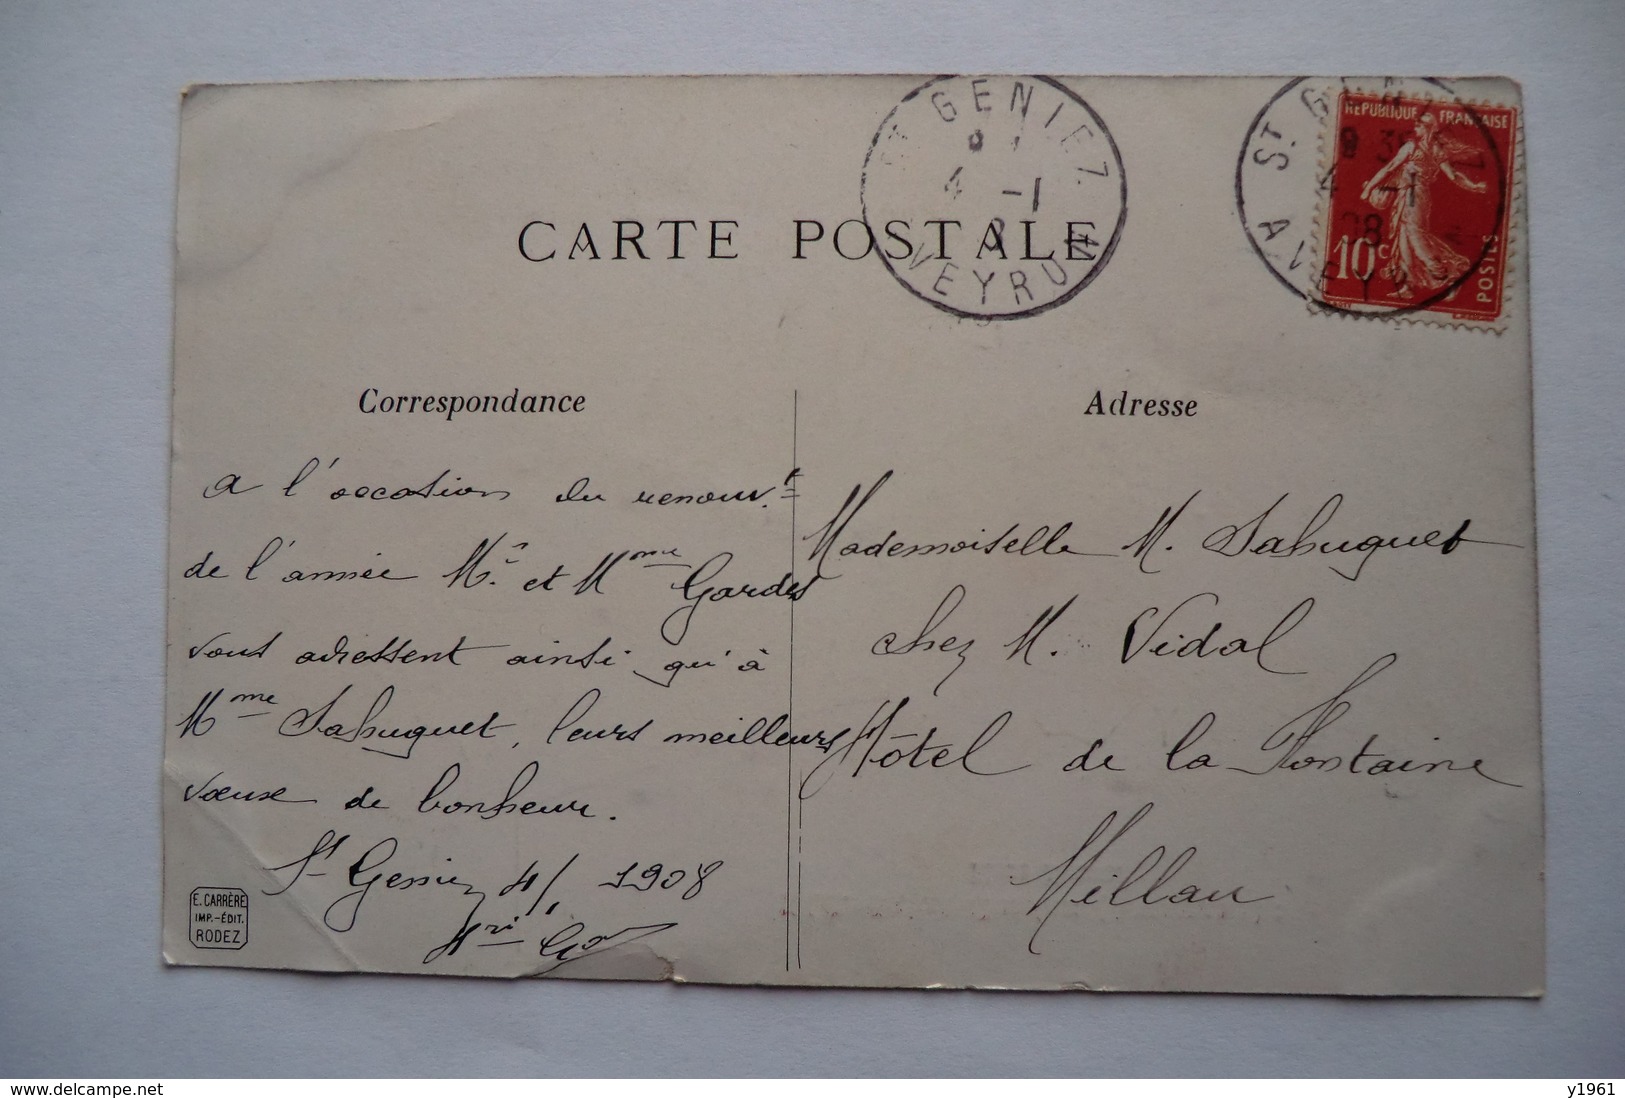 ST GENIEZ
4 -1
AVEYRON
ST GENIEZ
4 -1
08
AVEYRON
REPUBLIQUE FRANÇAISE
10c
POSTES
CARTE POSTALE
Correspondance
a l'occasion du renouv.t
de l'année Mr et Mme Gardes
vous adressent ainsi qu'à
Mme Sahuguet, leurs meilleurs
vœux de bonheur.
St Geniez 4/1 1908
Hri
E. CARRÈRE
IMP.-ÉDIT.
RODEZ
Adresse
Mademoiselle M. Sahuguet
chez M. Vidal
Hôtel de la Fontaine
Millau
www.delcampe.net
y1961